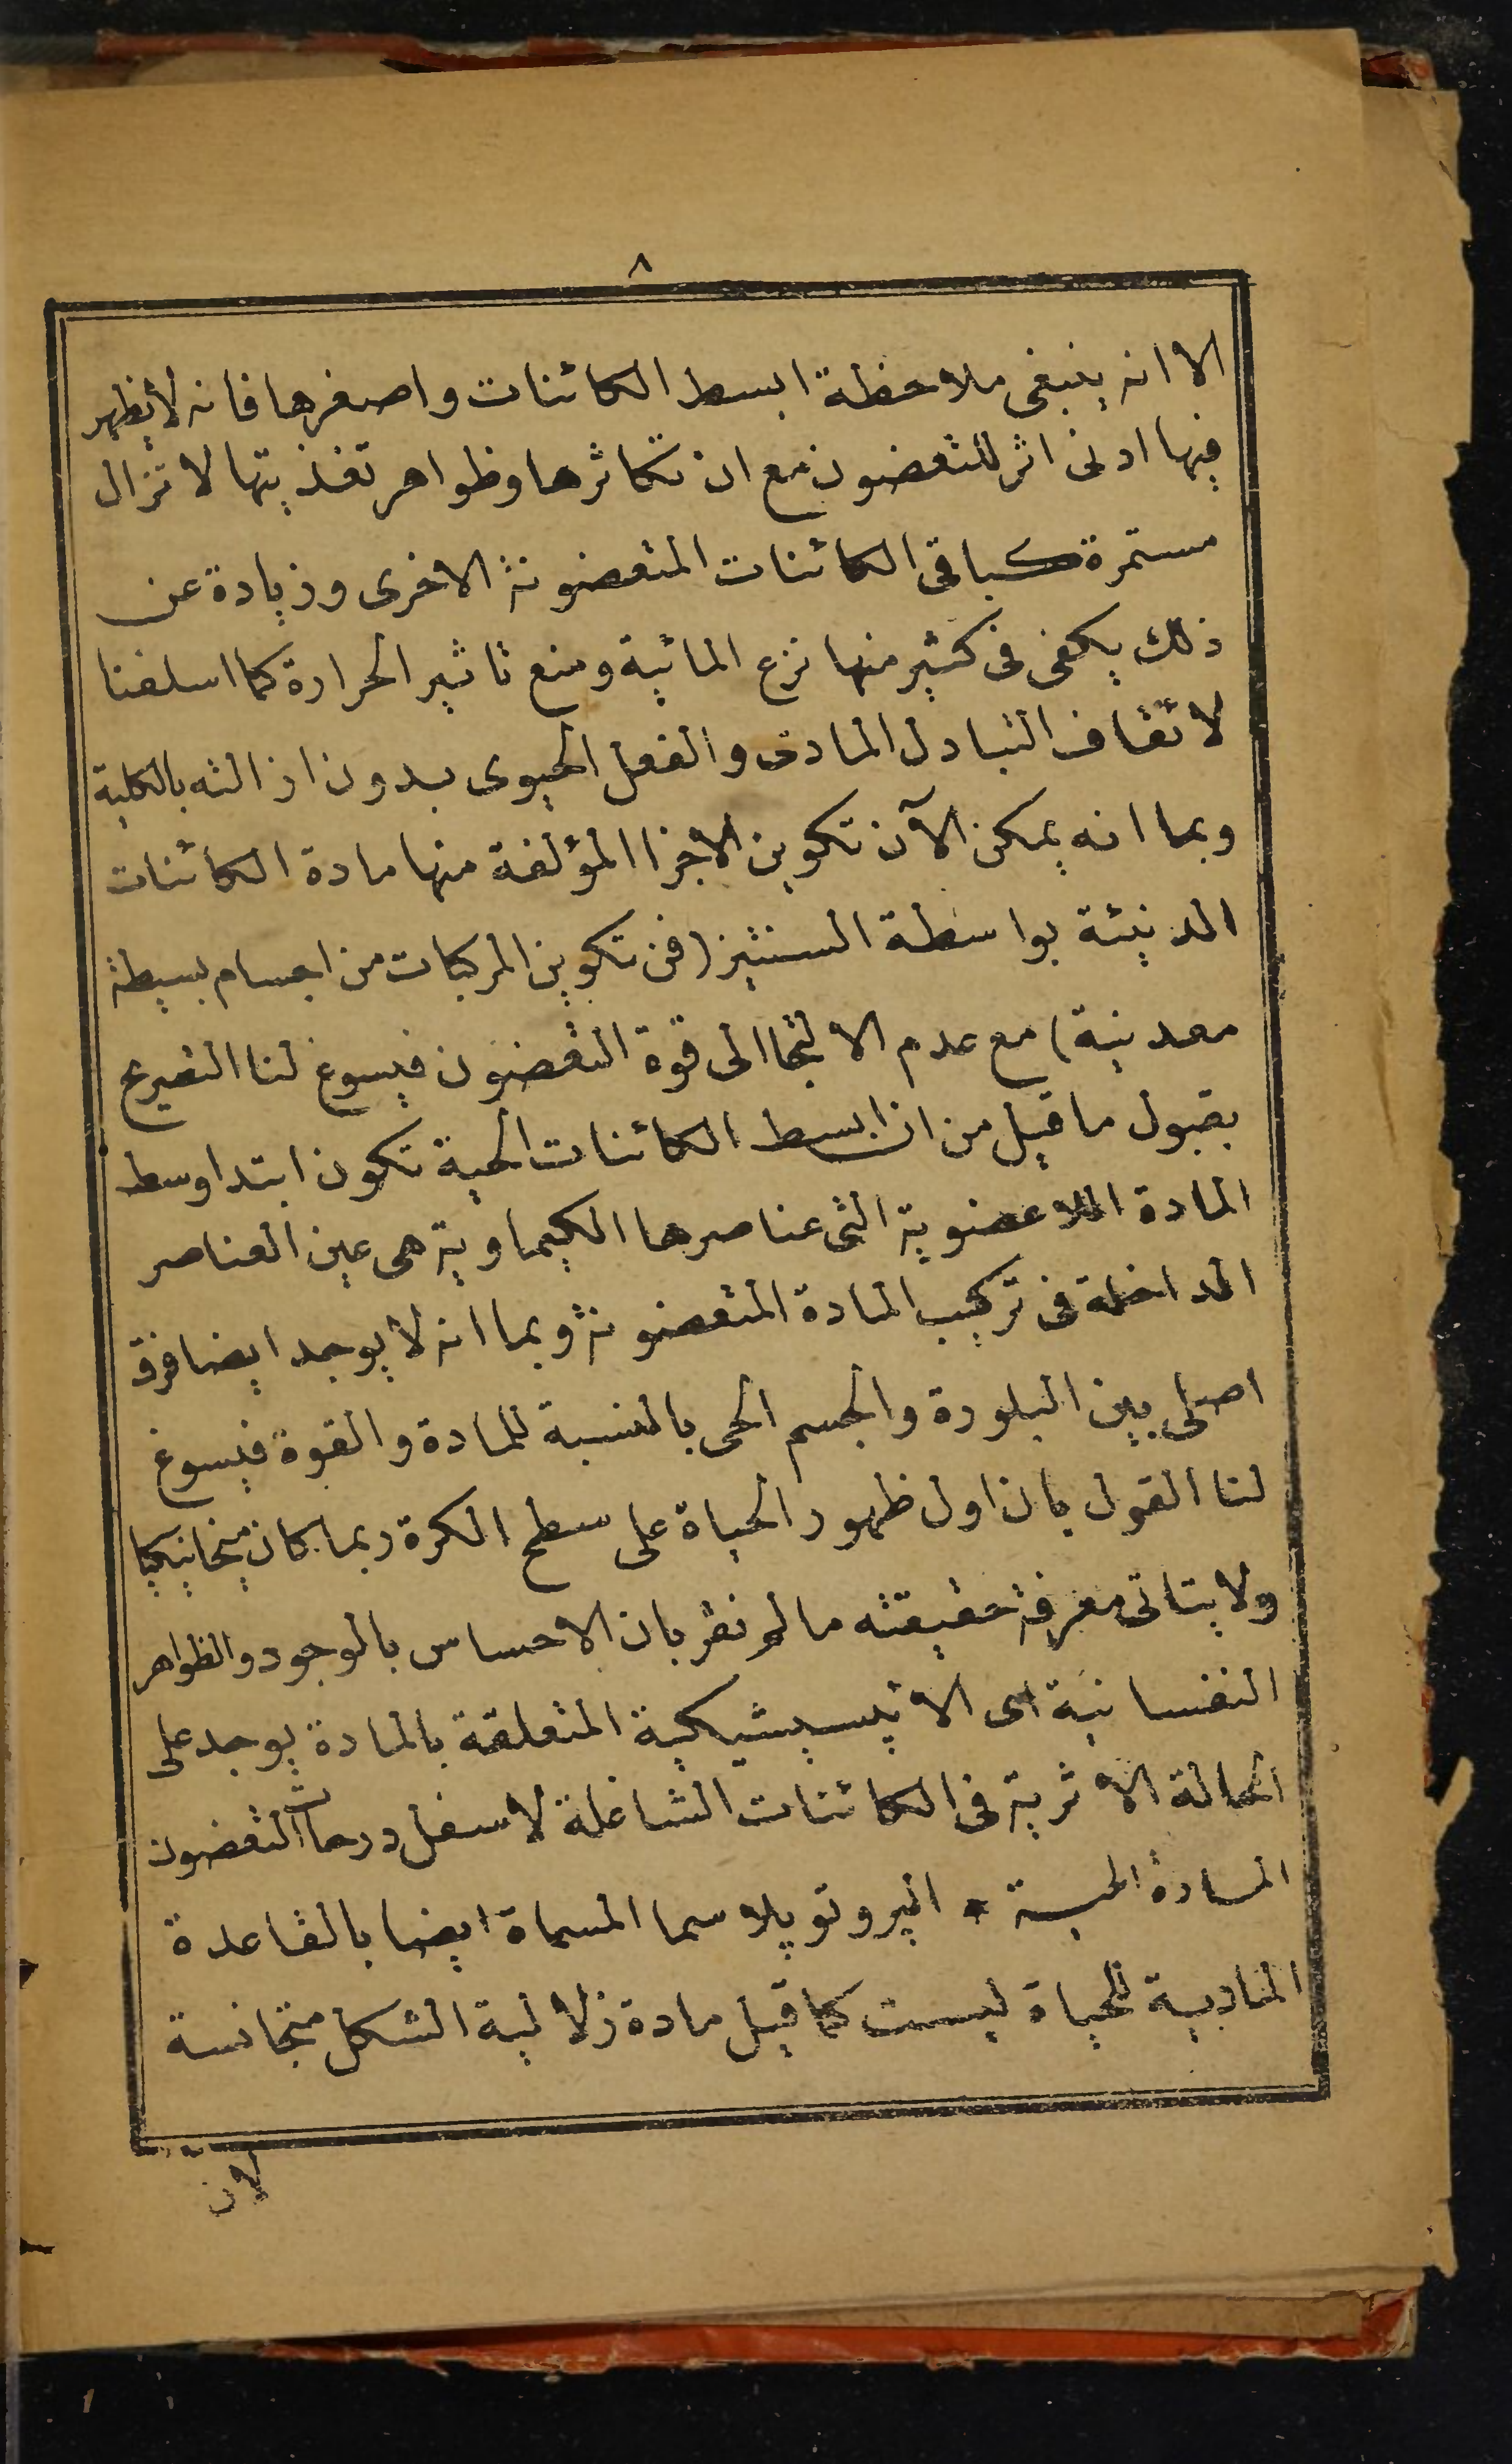 ٨
الا انه ينبغى ملاحظة ابسط الكائنات واصغرها فانه لا يظهر
فيها ادنى اثر للتعضون مع ان تكاثرها وظواهر تغذيتها لا تزال
مستمرة كباقى الكائنات المتعضونة الاخرى وزيادة عن
ذلك يكفى فى كثير منها نزع المائية ومنع تاثير الحرارة كما اسلفنا
لا تقاف التبادل المادى والفعل الحيوى بدون ازالته بالكلية
وبما انه يمكن الآن تكوين الاجزا المؤلفة منها مادة الكائنات
الدنيئة بواسطة السنتيز (فن تكوين المركبات من اجسام بسيطة
معدنية) مع عدم الالتجا الى قوة التعضون فيسوغ لنا التصريح
بقبول ما قيل من ان ابسط الكائنات الحية تكون ابتدا وسط
المادة اللاعضوية التى عناصرها الكيماوية هى عين العناصر
الداخلة فى تركيب المادة المتعضونة وبما انه لا يوجد ايضا فرق
اصلى بين البلورة والجسم الحى بالنسبة للمادة والقوة فيسوغ
لنا القول بان اول ظهور الحياة على سطح الكرة ربما كان ميخانيكيا
ولا يتاتى معرفة حقيقته ما لم نقر بان الاحساس بالوجود والظواهر
النفسانية اى الا پسيشيكية المتعلقة بالمادة يوجد على
الحالة الاثرية فى الكائنات الشاغلة لاسفل درجات التعضون
المادة الحية * الپروتوپلاسما المسماة ايضا بالقاعدة
المادية للحياة ليست كما قيل مادة زلالية الشكل متجانسة
لان